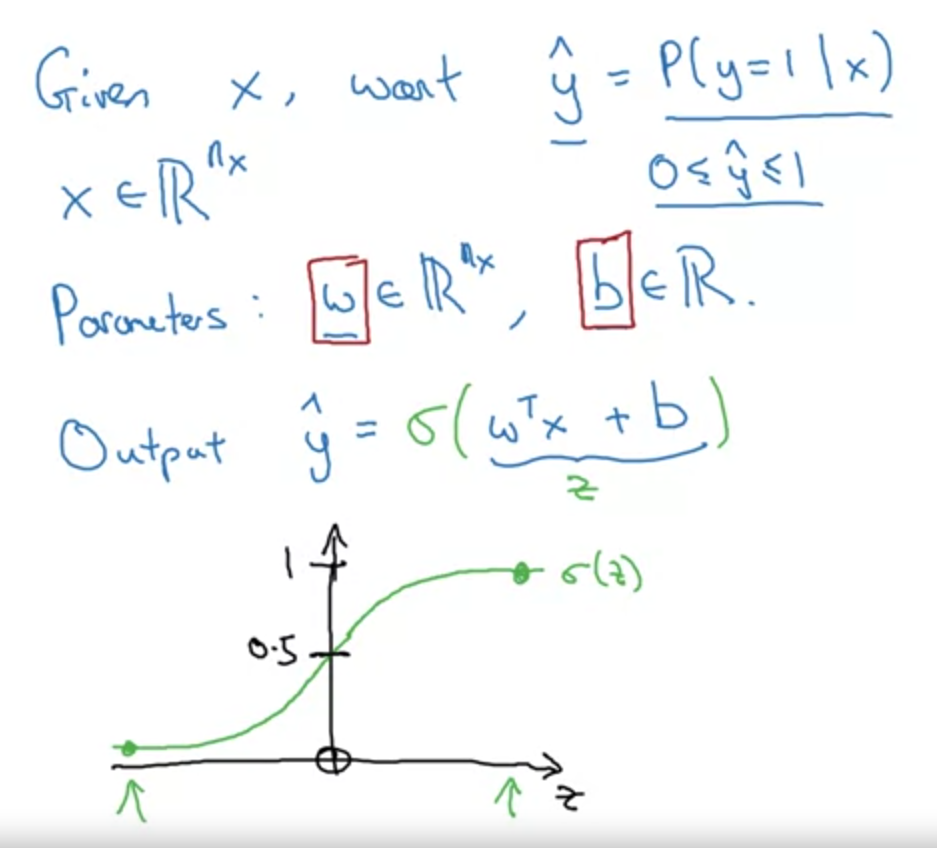 Given x, want ŷ = P(y=1|x)
x ∈ ℝⁿˣ 0 ≤ ŷ ≤ 1
Parameters: w ∈ ℝⁿˣ, b ∈ ℝ.
Output ŷ = σ(wᵀx + b)
z
1
σ(z)
0.5
z